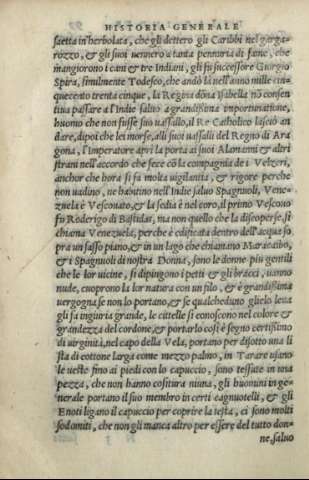 HISTORIA GENERALE
saetta in'herbolata, che gli dettero gli Caribbi nel garga-
rozzo, & gli suoi vennero a tanta penuria di fame, che
mangiorono i cani & tre Indiani, gli fu successore Giorgio
Spira, similmente Todesco, che andò là nell'anno mille cin-
quecento trenta cinque, la Regina dōna Issabella nō consen-
tiua passare all'Indie saluo a grandissima importunatione,
huomo che non fusse suo uassallo, il Re Catholico lasciò an
dare, dipoi che lei morse, alli suoi uassalli del Regno di Ara
gona, l'Imperatore aprì la porta ai suoi Alamani & altri
strani nell'accordo che fece cō la compagnia de i Velzeri,
anchor che hora si fa molta uigilantia, & rigore perche
non uadino, ne habitino nell'Indie saluo Spagnuoli, Vene-
zuela è Vescouato, & la sedia è nel coro, il primo Vescouo
fu Roderigo di Bastidas, ma non quello che la discoperse, si
chiama Venezuela, perche è edificata dentro dell'acqua so
pra un sasso piano, & in un lago che chiamano Maracaibo,
& i Spagnuoli di nostra Donna, sono le donne piu gentili
che le lor uicine, si dipingono i petti & gli bracci, uanno
nude, cuoprono la lor natura con un filo, & è grandissima
uergogna se non lo portano, & se qualcheduno glielo leua
gli fa ingiuria grande, le cittelle si conoscono nel colore &
grandezza del cordone, & portarlo cosi è segno certissimo
di uirginità, nel capo della Vela, portano per disotto una li
sta di cottone larga come mezzo palmo, in Tarare usano
le ueste fino ai piedi con lo capuccio, sono tessute in una
pezza, che non hanno cositura niuna, gli huomini in ge-
nerale portano il suo membro in certi cagnuotelli, & gli
Enoti ligano il capuccio per coprire la testa, ci sono molti
sodomiti, che non gli manca altro per essere del tutto don-
ne, saluo